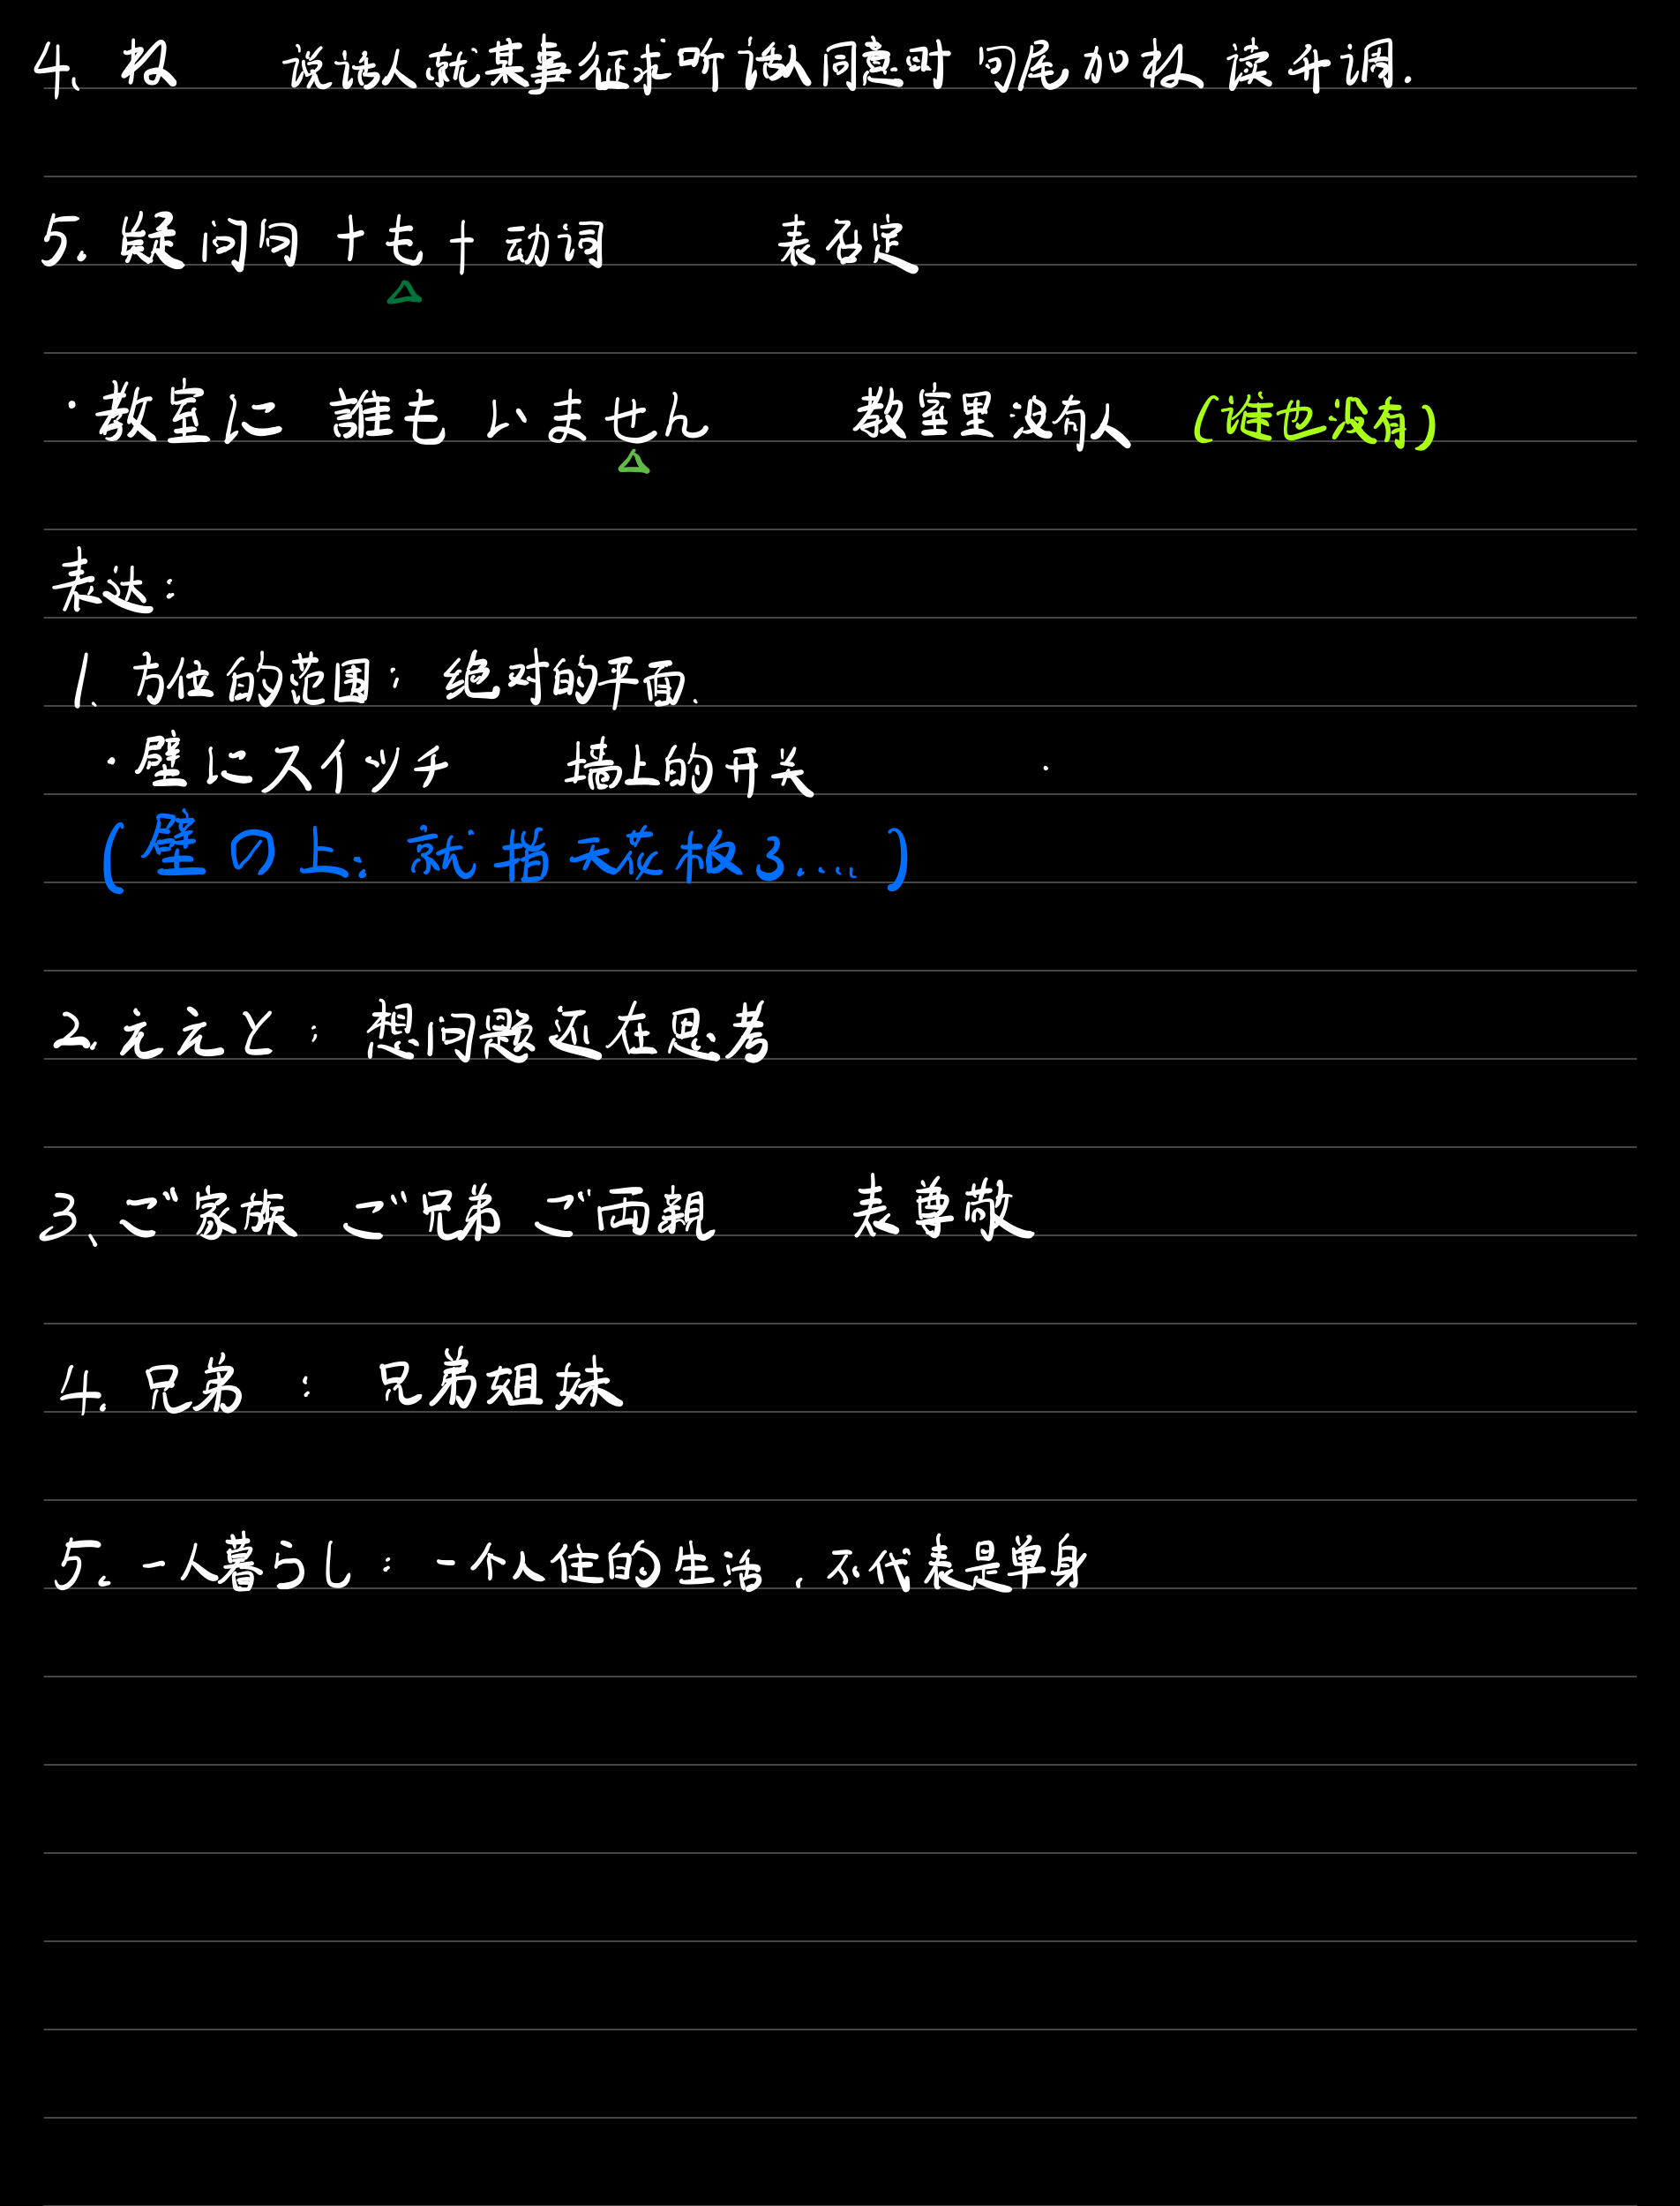 4、ね 说话人就某事征求听话人同意时 句尾加ね 读升调.
5. 疑问词 + も + 动词 表否定
・教室に 誰も いません 教室里没有人 (谁也没有)
表达:
1. 方位的范围: 绝对的平面.
・壁にスイッチ 墙上的开关
(壁の上: 就指天花板了....)
2. ええと: 想问题还在思考
3、ご家族 ご兄弟 ご両親 表尊敬
4. 兄弟: 兄弟姐妹
5. 一人暮らし: 一个人住的生活, 不代表是单身